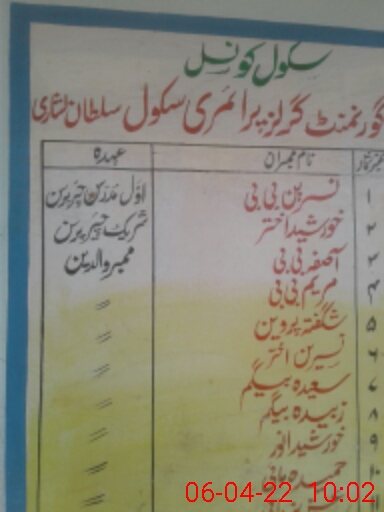 سکول کونسل
گورنمنٹ گرلز پرائمری سکول سلطان لشاری
نمبر شمار نام ممبران عہدہ
۱ نسرین بی بی اوّل مدرس چیرپرسن
۲ خورشید اختر شریک چیرپرسن
۳ آصفہ بی بی ممبر والدین
۴ مریم بی بی 〃
۵ شگفتہ پروین 〃
۶ نسیرن اختر 〃
۷ سعیدہ بیگم 〃
۸ زبیدہ بیگم 〃
۹ خورشید انور 〃
۱۰ حمیدہ 〃
06-04-22 10:02